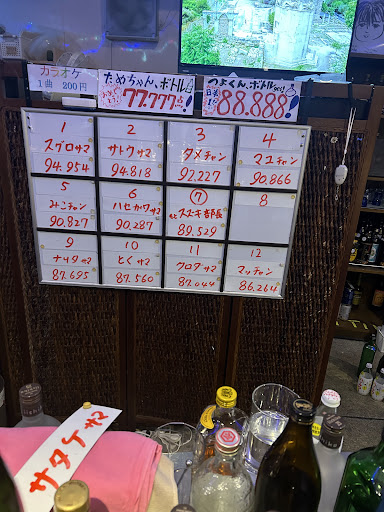 カラオケ
1曲 200円
ためちゃん、ボトル
77.777点!
つよくん、ボトル
88.888!
1
スグロサマ
94.954
2
サトウサマ
94.818
3
タメチャン
92.227
4
マユチャン
90.866
5
みこチャン
90.827
6
ハセガワサマ
90.287
7
スズキ部長
89.529
8
9
ナリタサマ
87.695
10
とくサマ
87.560
11
クロダサマ
87.044
12
マッチャン
86.264
サタケサマ